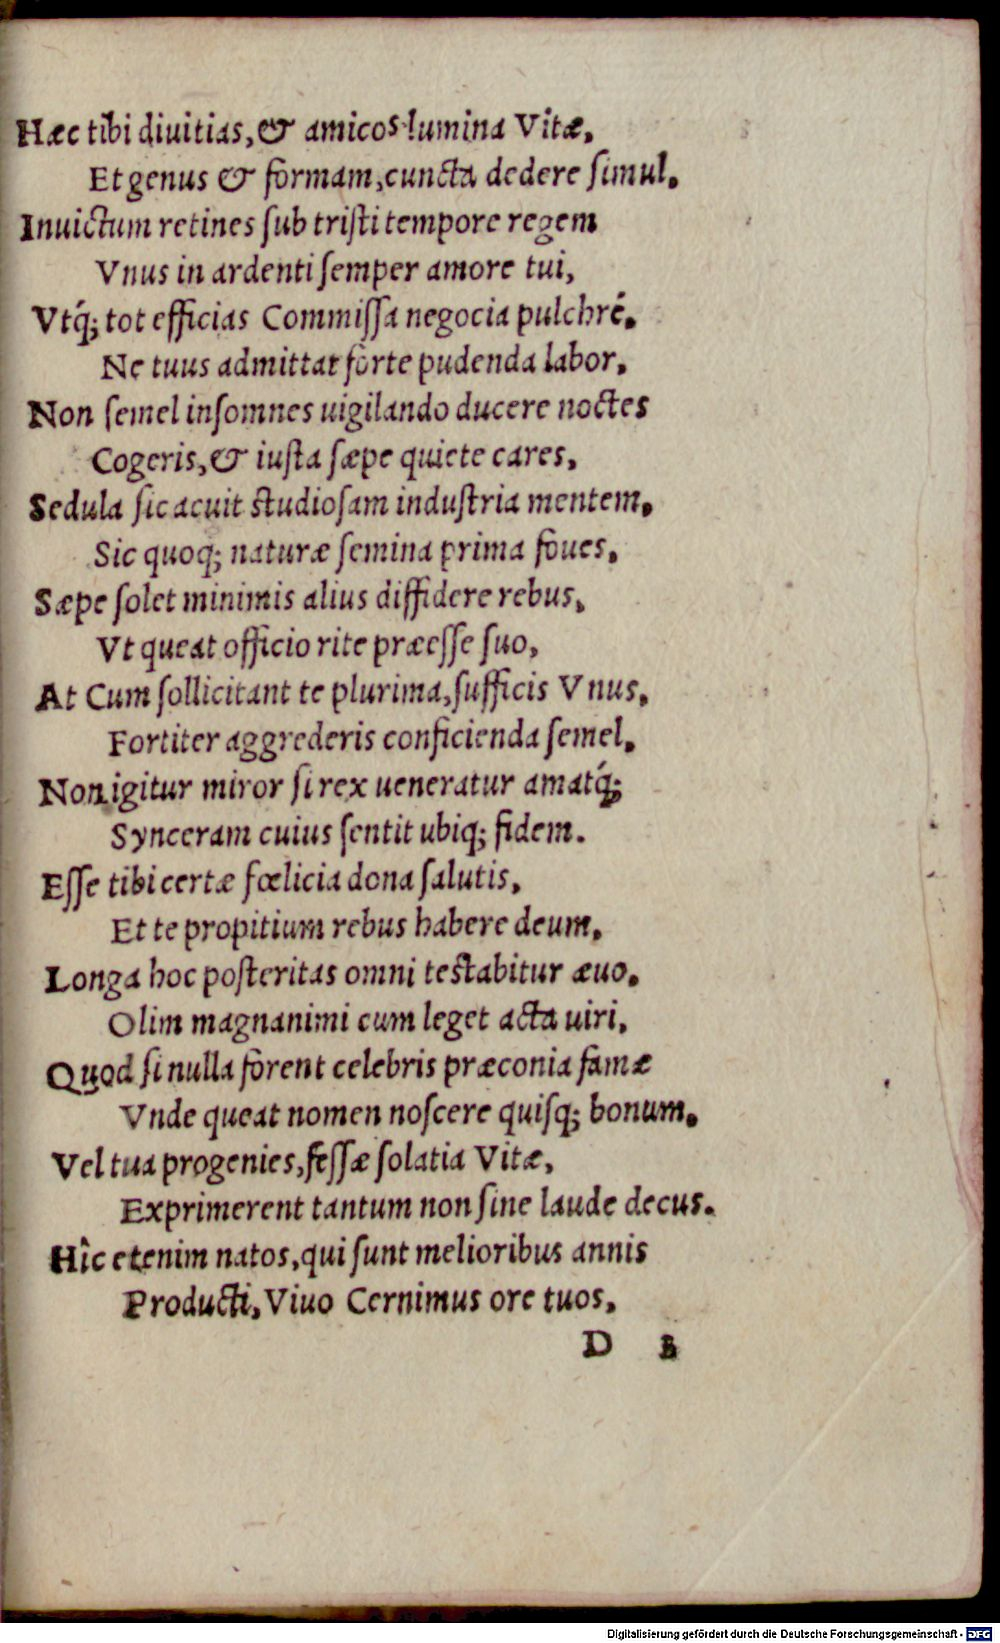 Hæc tibi diuitias, & amicos lumina Vitæ,
Et genus & formam, cuncta dedere ſimul.
Inuictum retines ſub triſti tempore regem
Vnus in ardenti ſemper amore tui,
Vtq́; tot efficias Commiſſa negocia pulchré.
Ne tuus admittat forte pudenda labor,
Non ſemel inſomnes uigilando ducere noctes
Cogeris, & iuſta ſæpe quiete cares,
Sedula ſic acuit ſtudioſam induſtria mentem,
Sic quoq; naturæ ſemina prima foues,
Sæpe ſolet minimis alius diffidere rebus,
Vt queat officio rite præeſſe ſuo,
At Cum ſollicitant te plurima, ſufficis Vnus,
Fortiter aggrederis conficienda ſemel,
Non igitur miror ſi rex ueneratur amatq́;
Synceram cuius ſentit ubiq; fidem.
Eſſe tibi certæ fœlicia dona ſalutis,
Et te propitium rebus habere deum,
Longa hoc poſteritas omni teſtabitur æuo,
Olim magnanimi cum leget acta uiri,
Quod ſi nulla forent celebris præconia famæ
Vnde queat nomen noſcere quiſq; bonum,
Vel tua progenies, feſſæ ſolatia Vitæ,
Exprimerent tantum non ſine laude decus.
Hîc etenim natos, qui ſunt melioribus annis
Producti, Viuo Cernimus ore tuos,
D
Digitalisierung gefördert durch die Deutsche Forschungsgemeinschaft - DFG